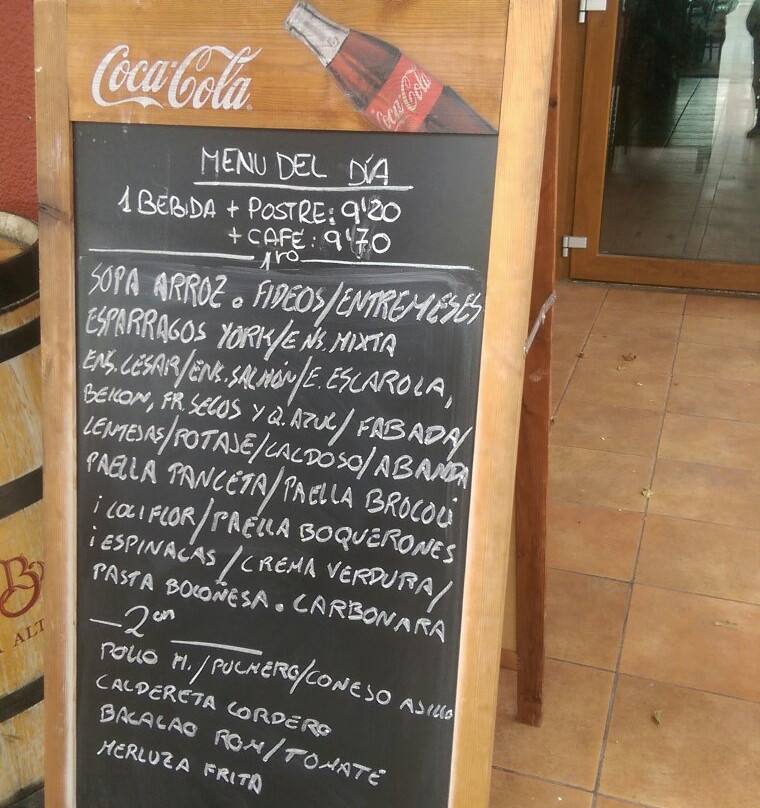 Coca-Cola
Coca-Cola
MENU DEL DÍA
1 BEBIDA + POSTRE: 9'20
+ CAFÉ: 9'70
1ro
SOPA ARROZ. FIDEOS/ENTREMESES
ESPARRAGOS YORK/ENS.MIXTA
ENS.CESAR/ENS.SALMÓN/E.ESCAROLA,
BEICON, FR.SECOS Y Q.AZUL/FABADA/
LENTEJAS/POTAJE/CALDOSO/ABANDA
PAELLA PANCETA/PAELLA BROCOLI
i COLIFLOR/PAELLA BOQUERONES
i ESPINACAS/CREMA VERDURA/
PASTA BOLOÑESA. CARBONARA
2
POLLO M./PUCHERO/CONEJO AJILLO
CALDERETA CORDERO
BACALAO ROM/TOMATE
MERLUZA FRITA
ALT